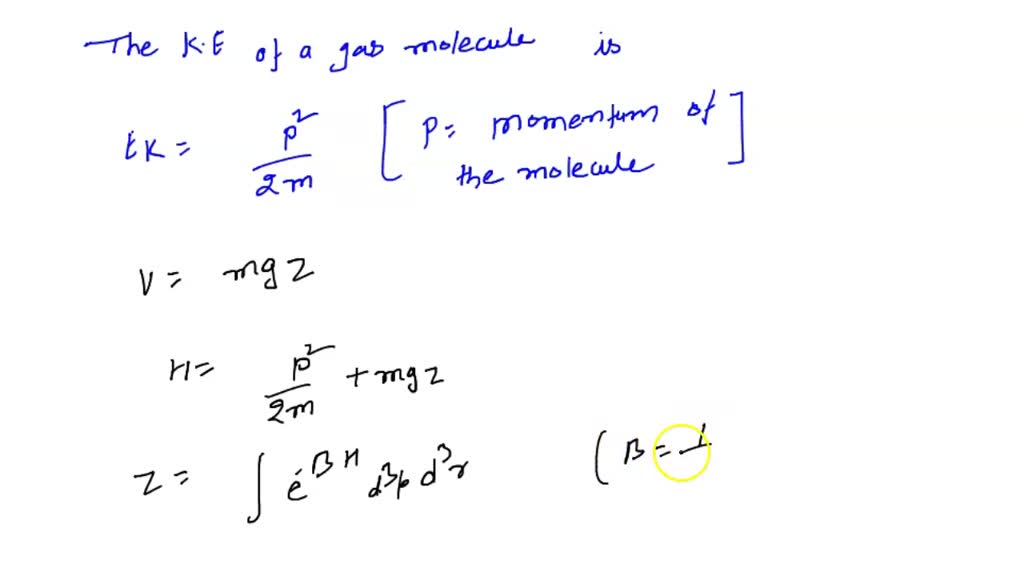 The K.E of a gas molecule is
EK = p²/2m [ P = momentum of the molecule ]
V = mgz
H = p²/2m + mgz
Z = ∫ e^-βH d³p d³r ( β = 1